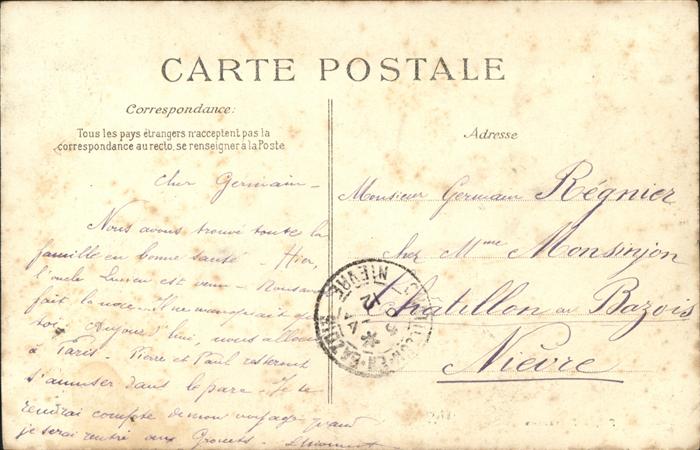 CARTE POSTALE
Correspondance:
Tous les pays étrangers n'acceptent pas la
correspondance au recto, se renseigner à la Poste
Adresse
Cher Germain -
Nous avons trouvé toute la
famille en bonne santé - Hier,
l'oncle Lucien est venu - Nous avons
fait la noce. Il ne manquait que
toi. Aujourd'hui, nous allons
à Paris. Pierre et Paul resteront
s'amuser dans le parc. Je te
rendrai compte de mon voyage quand
je serai rentré aux
Monsieur Germain Régnier
chez Mme Monsinjon
Châtillon en Bazois
Nièvre
NIEVRE